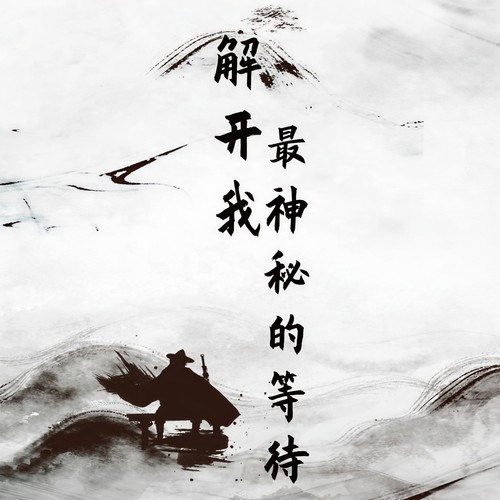 解开我
最神秘的等待